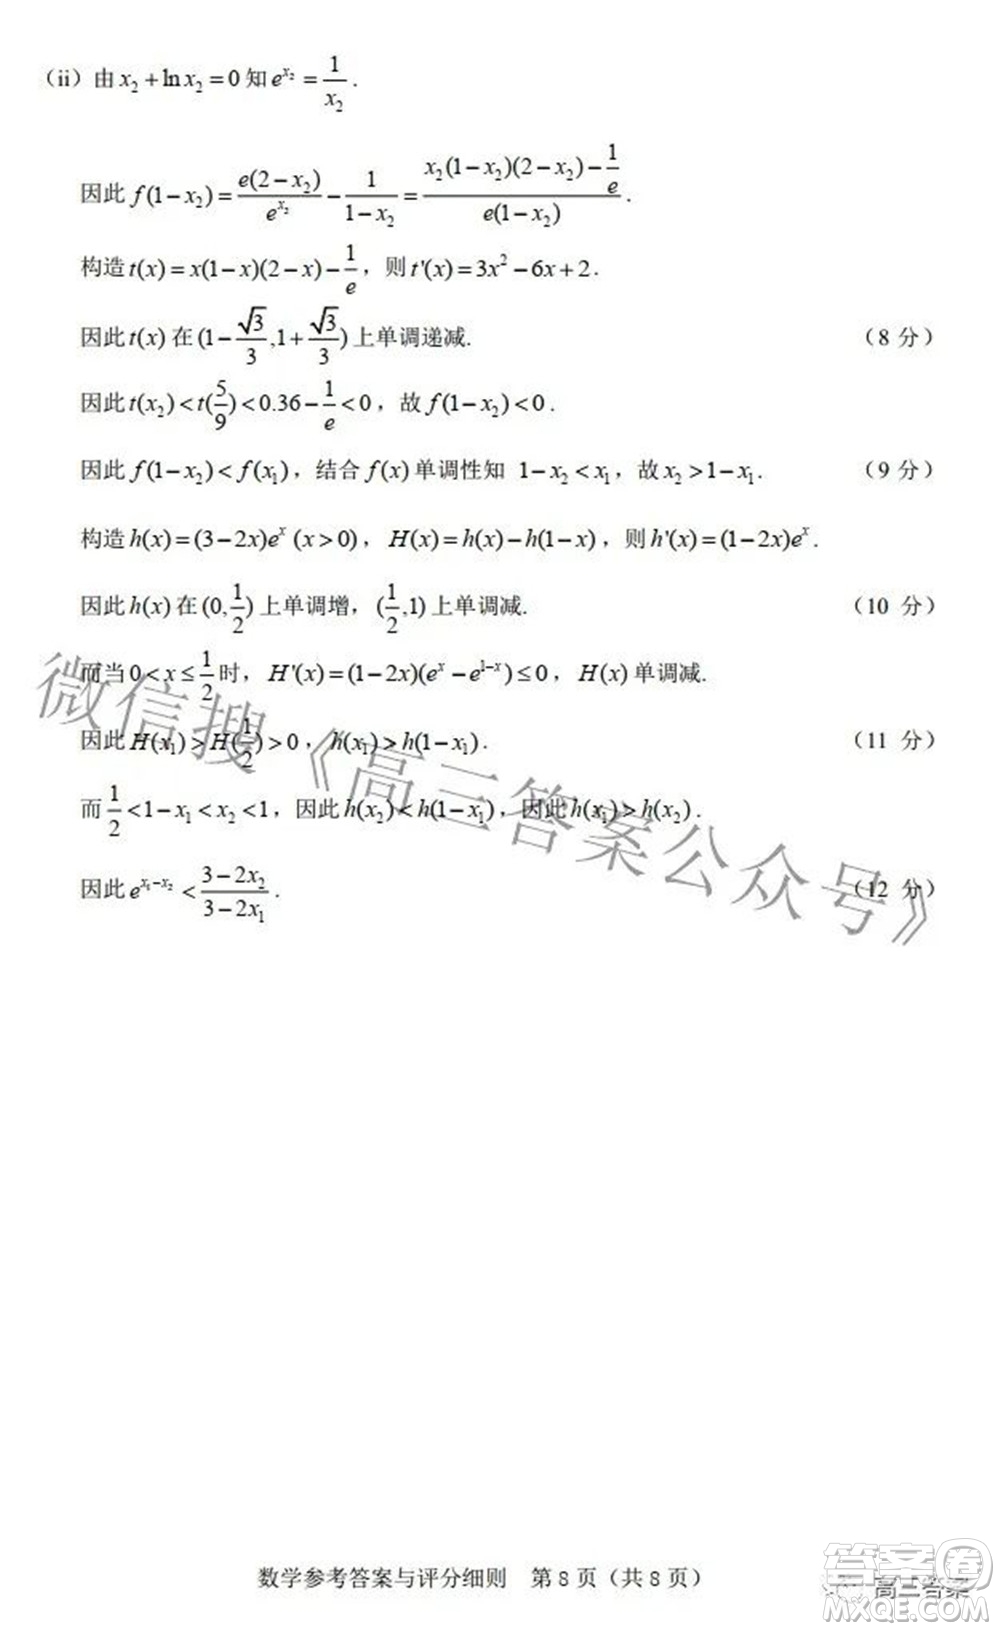 （ii）由 x₂ + ln x₂ = 0 知 e^{x₂} = 1/x₂ .
因此 f(1−x₂) = e(2−x₂)/e^{x₂} − 1/(1−x₂) = (x₂(1−x₂)(2−x₂) − 1/e)/(e(1−x₂)) .
构造 t(x) = x(1−x)(2−x) − 1/e，则 t'(x) = 3x² − 6x + 2 .
因此 t(x) 在 (1 − √3/3, 1 + √3/3) 上单调递减. （8 分）
因此 t(x₂) < t(5/9) < 0.36 − 1/e < 0，故 f(1−x₂) < 0 .
因此 f(1−x₂) < f(x₁)，结合 f(x) 单调性知 1−x₂ < x₁，故 x₂ > 1−x₁ . （9 分）
构造 h(x) = (3−2x)e^x (x > 0)，H(x) = h(x) − h(1−x)，则 h'(x) = (1−2x)e^x .
因此 h(x) 在 (0, 1/2) 上单调增，(1/2, 1) 上单调减. （10 分）
而当 0 < x ≤ 1/2 时，H'(x) = (1−2x)(e^x − e^{1−x}) ≤ 0，H(x) 单调减.
因此 H(x₁) > H(1/2) > 0，h(x₁) > h(1−x₁) . （11 分）
而 1/2 < 1−x₁ < x₂ < 1，因此 h(x₂) < h(1−x₁)，因此 h(x₁) > h(x₂) .
因此 e^{x₁−x₂} < (3−2x₂)/(3−2x₁) . （12 分）
微信搜《高三答案公众号》
数学参考答案与评分细则 第 8 页（共 8 页）
答案卷
高三答案
MXQE.COM